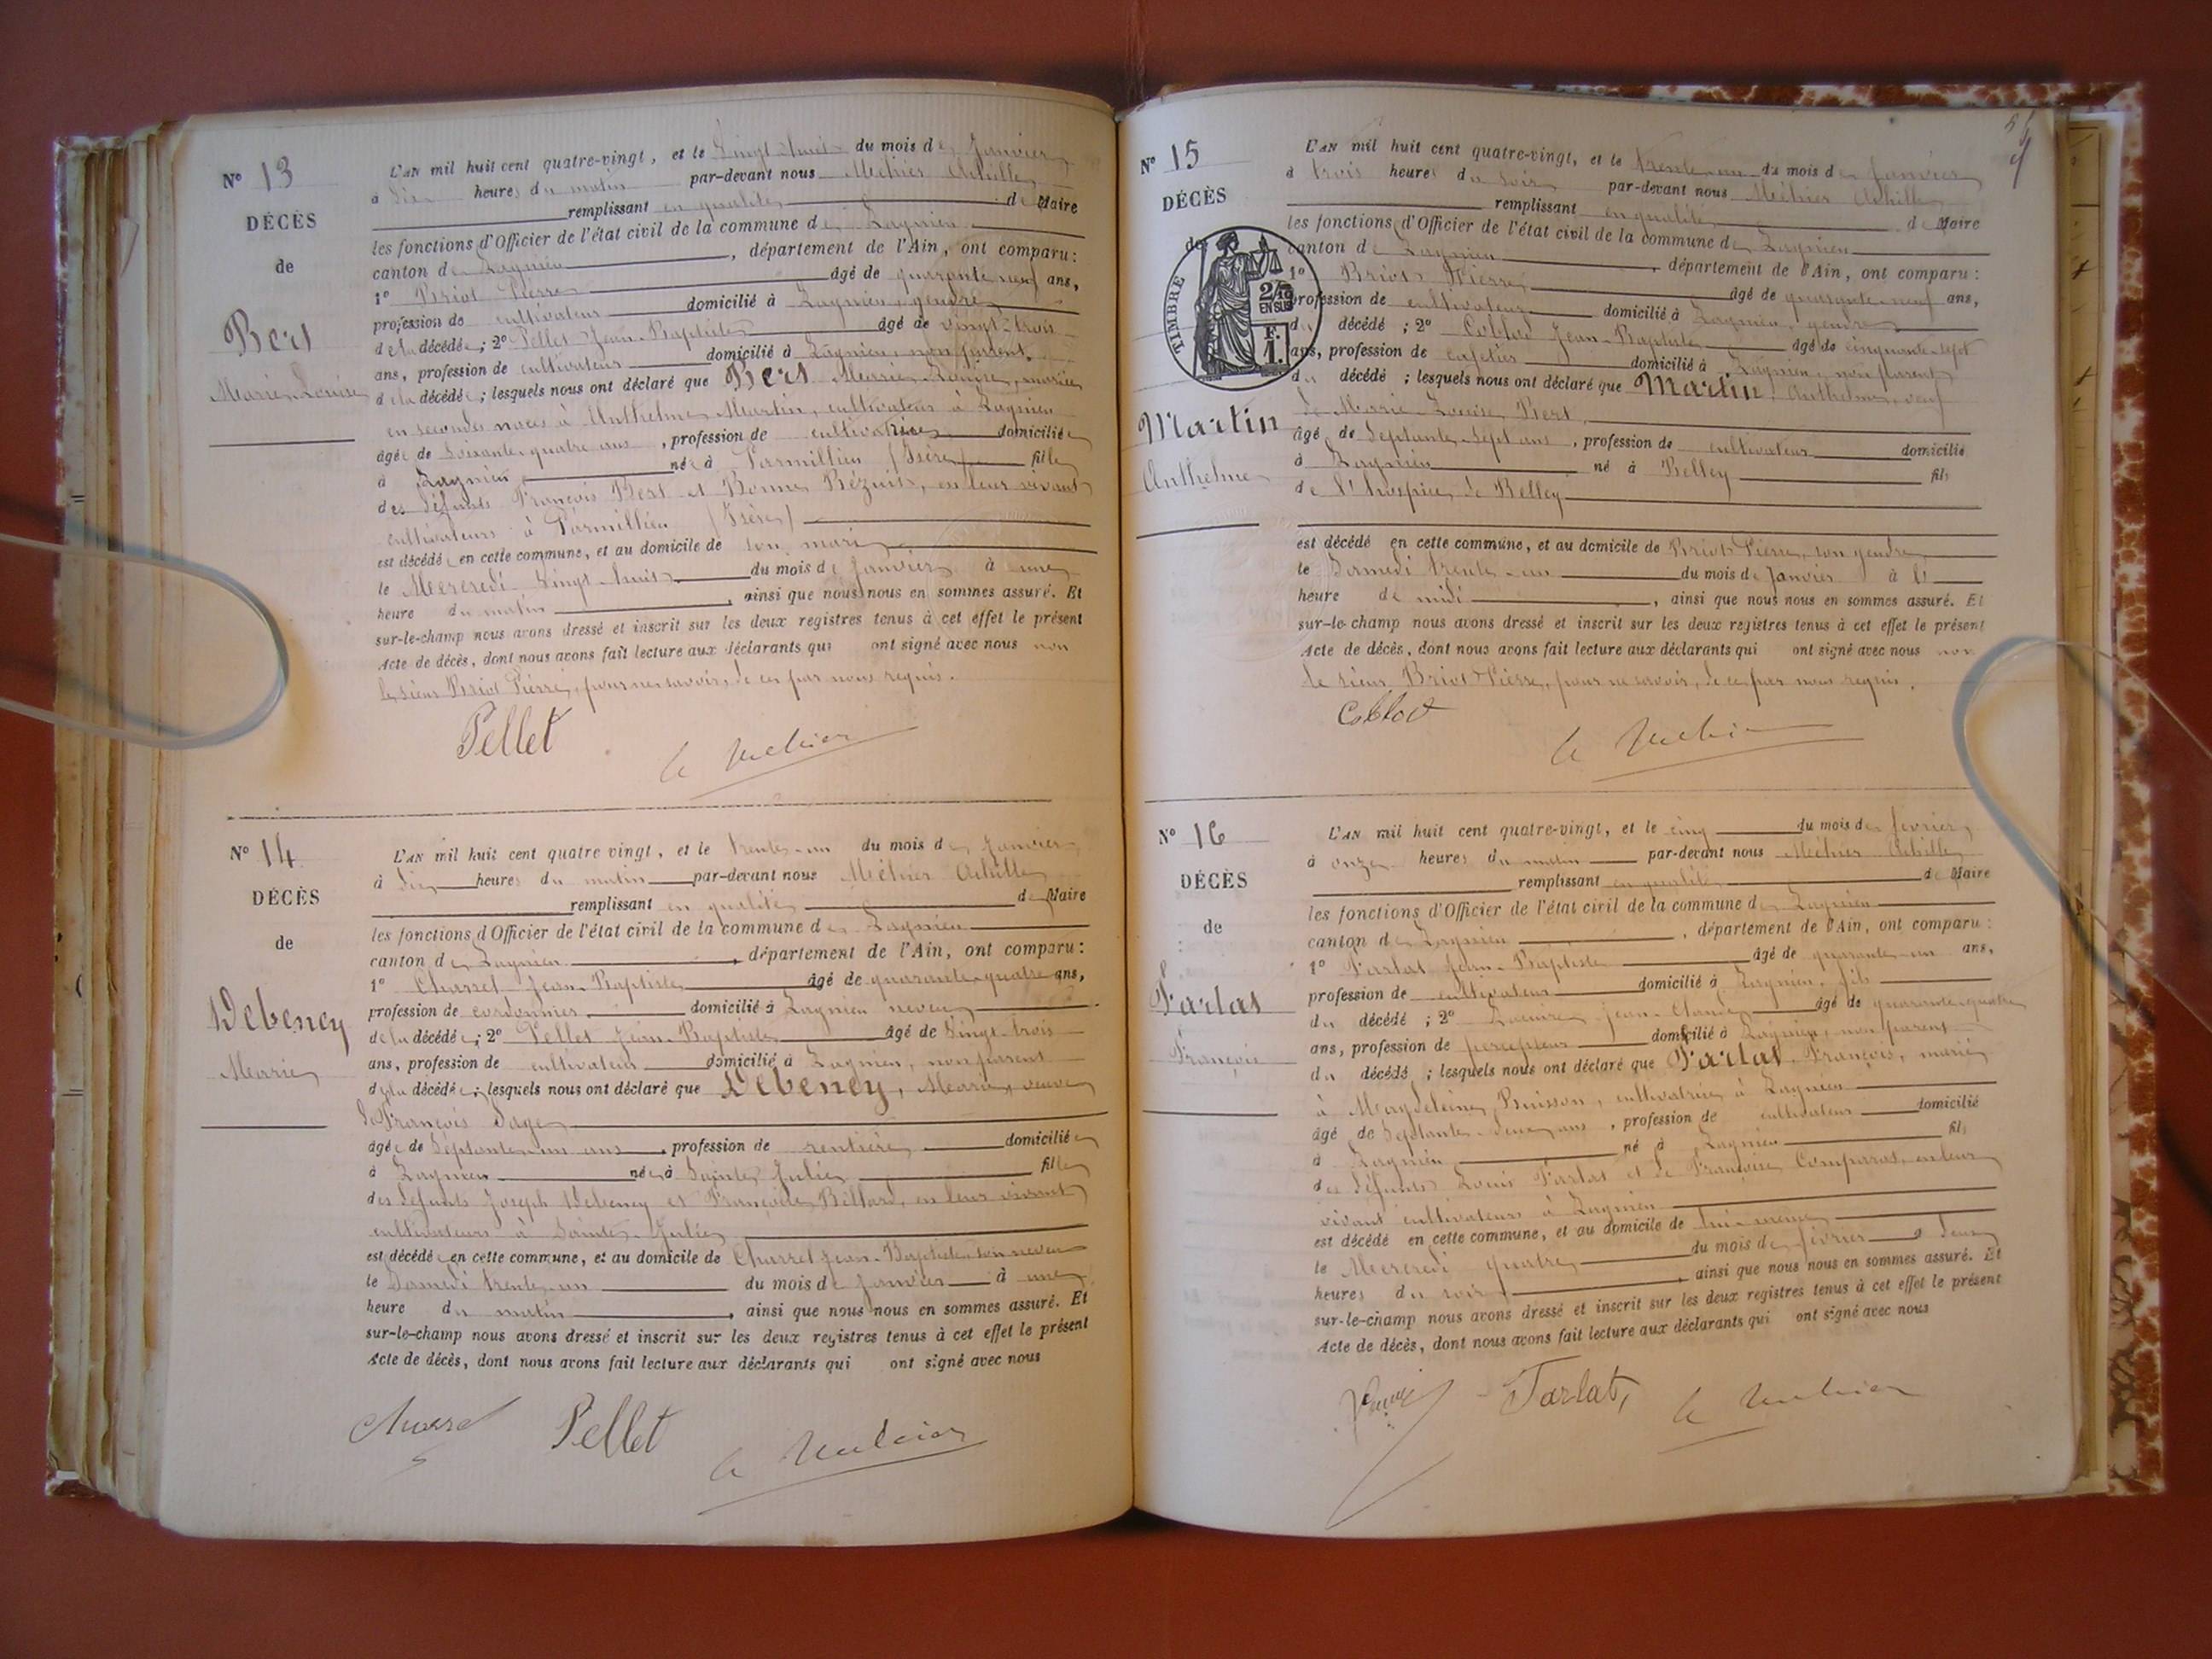 N° 13
DÉCÈS
de
Bert
Marie Louise
L'AN mil huit cent quatre-vingt, et le vingt-huit du mois de Janvier
à dix heures du matin par-devant nous Méhier Achille
remplissant en qualité de Maire
les fonctions d'Officier de l'état civil de la commune de Lagnieu
canton de Lagnieu, département de l'Ain, ont comparu :
1° Briot Pierre âgé de quarante neuf ans,
profession de cultivateur domicilié à Lagnieu, gendre
de la décédée ; 2° Pellet Jean-Baptiste âgé de vingt-trois
ans, profession de cultivateur domicilié à Lagnieu, non parent
de la décédée ; lesquels nous ont déclaré que Bert Marie Louise, mariée
en secondes noces à Anthelme Martin, cultivateur à Lagnieu
âgée de soixante quatre ans, profession de cultivatrice domiciliée
à Lagnieu née à Parmillieu (Isère) fille
des défunts François Bert et Bonne, en leur vivant
cultivateurs à Parmillieu (Isère)
est décédée en cette commune, et au domicile de son mari
le Mercredi vingt-huit du mois de Janvier à une
heure du matin, ainsi que nous nous en sommes assuré. Et
sur-le-champ nous avons dressé et inscrit sur les deux registres tenus à cet effet le présent
Acte de décès, dont nous avons fait lecture aux déclarants qui ont signé avec nous non
le sieur Briot Pierre, pour ne savoir, de ce par nous requis.
Pellet
A Méhier
N° 14
DÉCÈS
de
Debeney
Marie
L'AN mil huit cent quatre vingt, et le trente-un du mois de Janvier
à dix heures du matin par-devant nous Méhier Achille
remplissant en qualité de Maire
les fonctions d'Officier de l'état civil de la commune de Lagnieu
canton de Lagnieu, département de l'Ain, ont comparu :
1° Charrel Jean-Baptiste âgé de quarante-quatre ans,
profession de cordonnier domicilié à Lagnieu neveu
de la décédée ; 2° Pellet Jean-Baptiste âgé de vingt-trois
ans, profession de cultivateur domicilié à Lagnieu, non parent
de la décédée ; lesquels nous ont déclaré que Debeney, Marie, veuve
de François Sage
âgée de septante-un ans, profession de rentière domiciliée
à Lagnieu née à Sainte Julie fille
des défunts Joseph Debeney et Françoise Billard, en leur vivant
cultivateurs à Sainte-Julie
est décédée en cette commune, et au domicile de Charrel Jean-Baptiste son neveu
le Samedi trente-un du mois de Janvier à une
heure du matin, ainsi que nous nous en sommes assuré. Et
sur-le-champ nous avons dressé et inscrit sur les deux registres tenus à cet effet le présent
Acte de décès, dont nous avons fait lecture aux déclarants qui ont signé avec nous
Charrel
Pellet
A Méhier
N° 15
DÉCÈS
de
TIMBRE
2/10
EN SUS
F.
1.
Martin
Anthelme
L'AN mil huit cent quatre-vingt, et le trente-un du mois de Janvier
à trois heures du soir par-devant nous Méhier Achille
remplissant en qualité de Maire
les fonctions d'Officier de l'état civil de la commune de Lagnieu
canton de Lagnieu, département de l'Ain, ont comparu :
1° Briot Pierre âgé de quarante-neuf ans,
profession de cultivateur domicilié à Lagnieu, gendre
du décédé ; 2° Coblod Jean-Baptiste âgé de cinquante-sept
ans, profession de cafetier domicilié à Lagnieu, non parent
du décédé ; lesquels nous ont déclaré que Martin, Anthelme, veuf
de Marie-Louise Bert
âgé de septante-sept ans, profession de cultivateur domicilié
à Lagnieu né à Belley fils
de l'hospice de Belley
est décédé en cette commune, et au domicile de Briot Pierre, son gendre
le Samedi trente-un du mois de Janvier à l'
heure de midi, ainsi que nous nous en sommes assuré. Et
sur-le-champ nous avons dressé et inscrit sur les deux registres tenus à cet effet le présent
Acte de décès, dont nous avons fait lecture aux déclarants qui ont signé avec nous non
le sieur Briot Pierre, pour ne savoir, de ce par nous requis.
Coblod
A Méhier
N° 16
DÉCÈS
de
Tarlat
François
L'AN mil huit cent quatre-vingt, et le cinq du mois de février
à onze heures du matin par-devant nous Méhier Achille
remplissant en qualité de Maire
les fonctions d'Officier de l'état civil de la commune de Lagnieu
canton de Lagnieu, département de l'Ain, ont comparu :
1° Tarlat Jean-Baptiste âgé de quarante-un ans,
profession de cultivateur domicilié à Lagnieu, fils
du décédé ; 2° Jean-Claude âgé de quarante-quatre
ans, profession de percepteur domicilié à Lagnieu, non parent
du décédé ; lesquels nous ont déclaré que Tarlat, François, marié
à Magdeleine Buisson, cultivatrice à Lagnieu
âgé de septante-deux ans, profession de cultivateur domicilié
à Lagnieu né à Lagnieu fils
des défunts Louis Tarlat et de Françoise Comparat, en leur
vivant cultivateurs à Lagnieu
est décédé en cette commune, et au domicile de lui-même
le Mercredi quatre du mois de février à deux
heures du soir, ainsi que nous nous en sommes assuré. Et
sur-le-champ nous avons dressé et inscrit sur les deux registres tenus à cet effet le présent
Acte de décès, dont nous avons fait lecture aux déclarants qui ont signé avec nous
Tarlat,
A Méhier